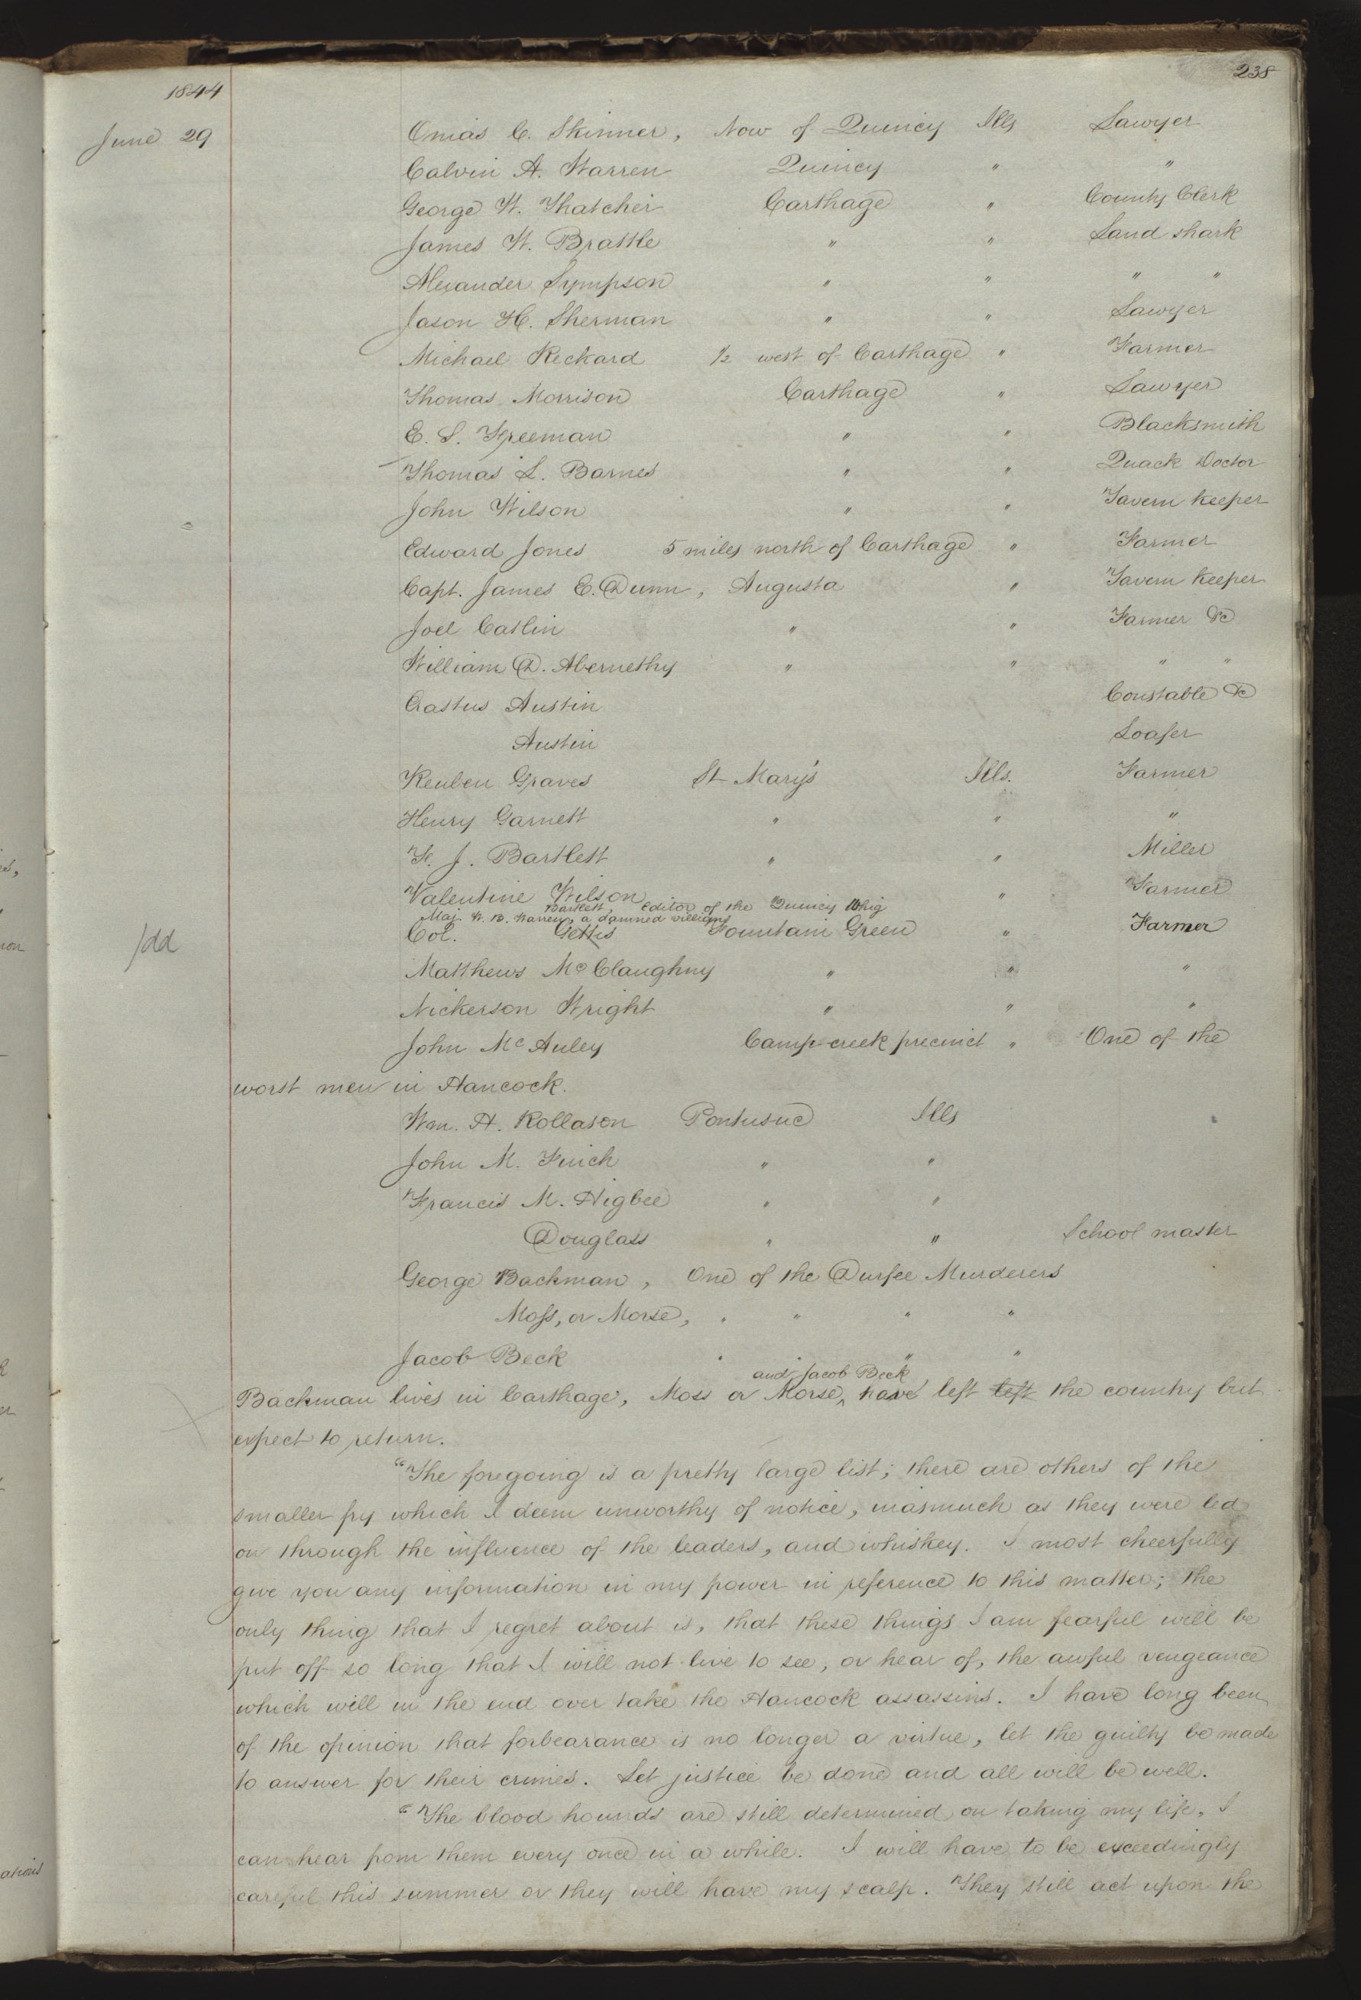 238
1844
June 29
Onias C. Skinner, Now of Quincy Ills Lawyer
Calvin A. Warren Quincy " "
George W. Thatcher Carthage " County Clerk
James W. Brattle " " Land shark
Alexander Sympson " " " "
Jason H. Sherman " " Lawyer
Michael Rickard ½ west of Carthage " Farmer
Thomas Morrison Carthage " Lawyer
E. S. Freeman " " Blacksmith
Thomas L. Barnes " " Quack Doctor
John Wilson " " Tavern keeper
Edward Jones 5 miles north of Carthage " Farmer
Capt. James E. Dunn, Augusta " Tavern keeper
Joel Catlin " " Farmer &c
William D. Abernethy " " " "
Erastus Austin Constable &c
Austin Loafer
Reuben Graves St Mary's Ills. Farmer
Henry Garnett " " "
F. J. Bartlett " " Miller
Valentine Wilson " Farmer
Bartlett, editor of the Quincy Whig
Maj. W. B. Warren, a damned villian
Col. Gettis Fountain Green " Farmer
Matthews McClaughny " " "
Nickerson Wright " " "
John McAuley Camp-creek precinct " One of the
worst men in Hancock.
Wm. H. Rollason Pontusuc Ills
John M. Finch " "
Francis M. Higbee " "
Douglass " " School master
George Backman, One of the Durfee Murderers
Moss, or Morse, " " " "
Jacob Beck " " "
and Jacob Beck
Backman lives in Carthage, Moss or Morse, ^ have left left the country but
expect to return.
"The foregoing is a pretty large list; there are others of the
smaller fry which I deem unworthy of notice, inasmuch as they were led
on through the influence of the leaders, and whiskey. I most cheerfully
give you any information in my power in reference to this matter; the
only thing that I regret about is, that these things I am fearful will be
put off so long that I will not live to see, or hear of, the awful vengeance
which will in the end over take the Hancock assassins. I have long been
of the opinion that forbearance is no longer a virtue, let the guilty be made
to answer for their crimes. Let justice be done and all will be well.
"The blood hounds are still determined on taking my life, I
can hear from them every once in a while. I will have to be exceedingly
careful this summer or they will have my scalp. They still act upon the